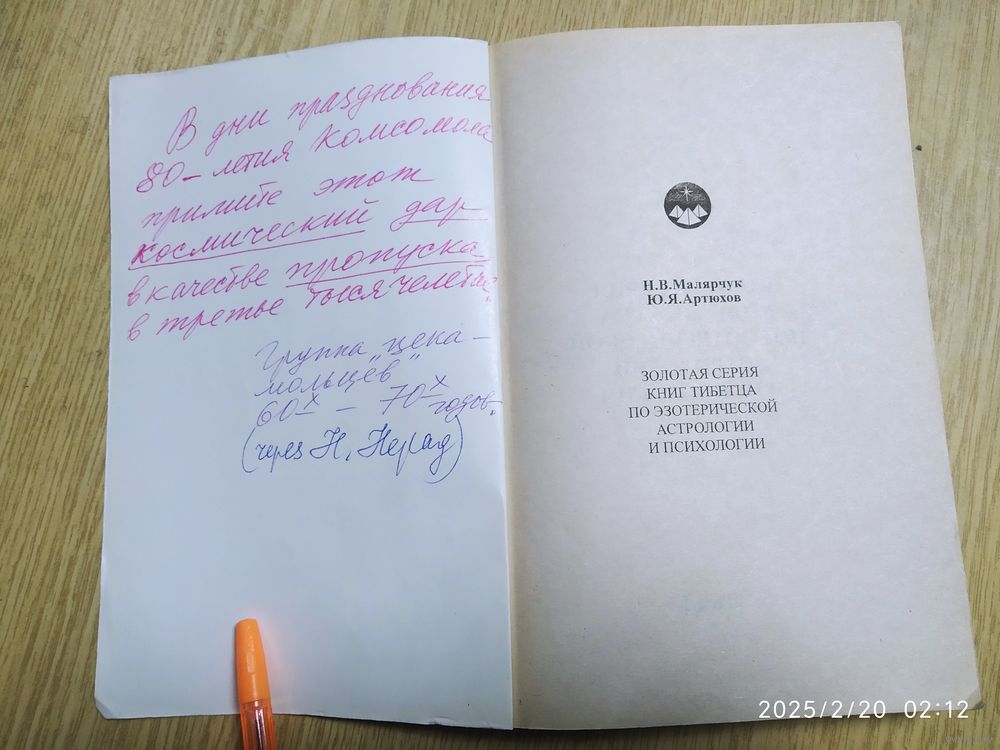 В дни празднования
80-летия Комсомола
примите этот
космический дар
в качестве пропуска
в третье тысячелетие.
Группа „цека-
мольцев"
60х – 70х годов.
(через Н. Нерад)
Н.В.Малярчук
Ю.Я.Артюхов
ЗОЛОТАЯ СЕРИЯ
КНИГ ТИБЕТЦА
ПО ЭЗОТЕРИЧЕСКОЙ
АСТРОЛОГИИ
И ПСИХОЛОГИИ
2025/2/20 02:12